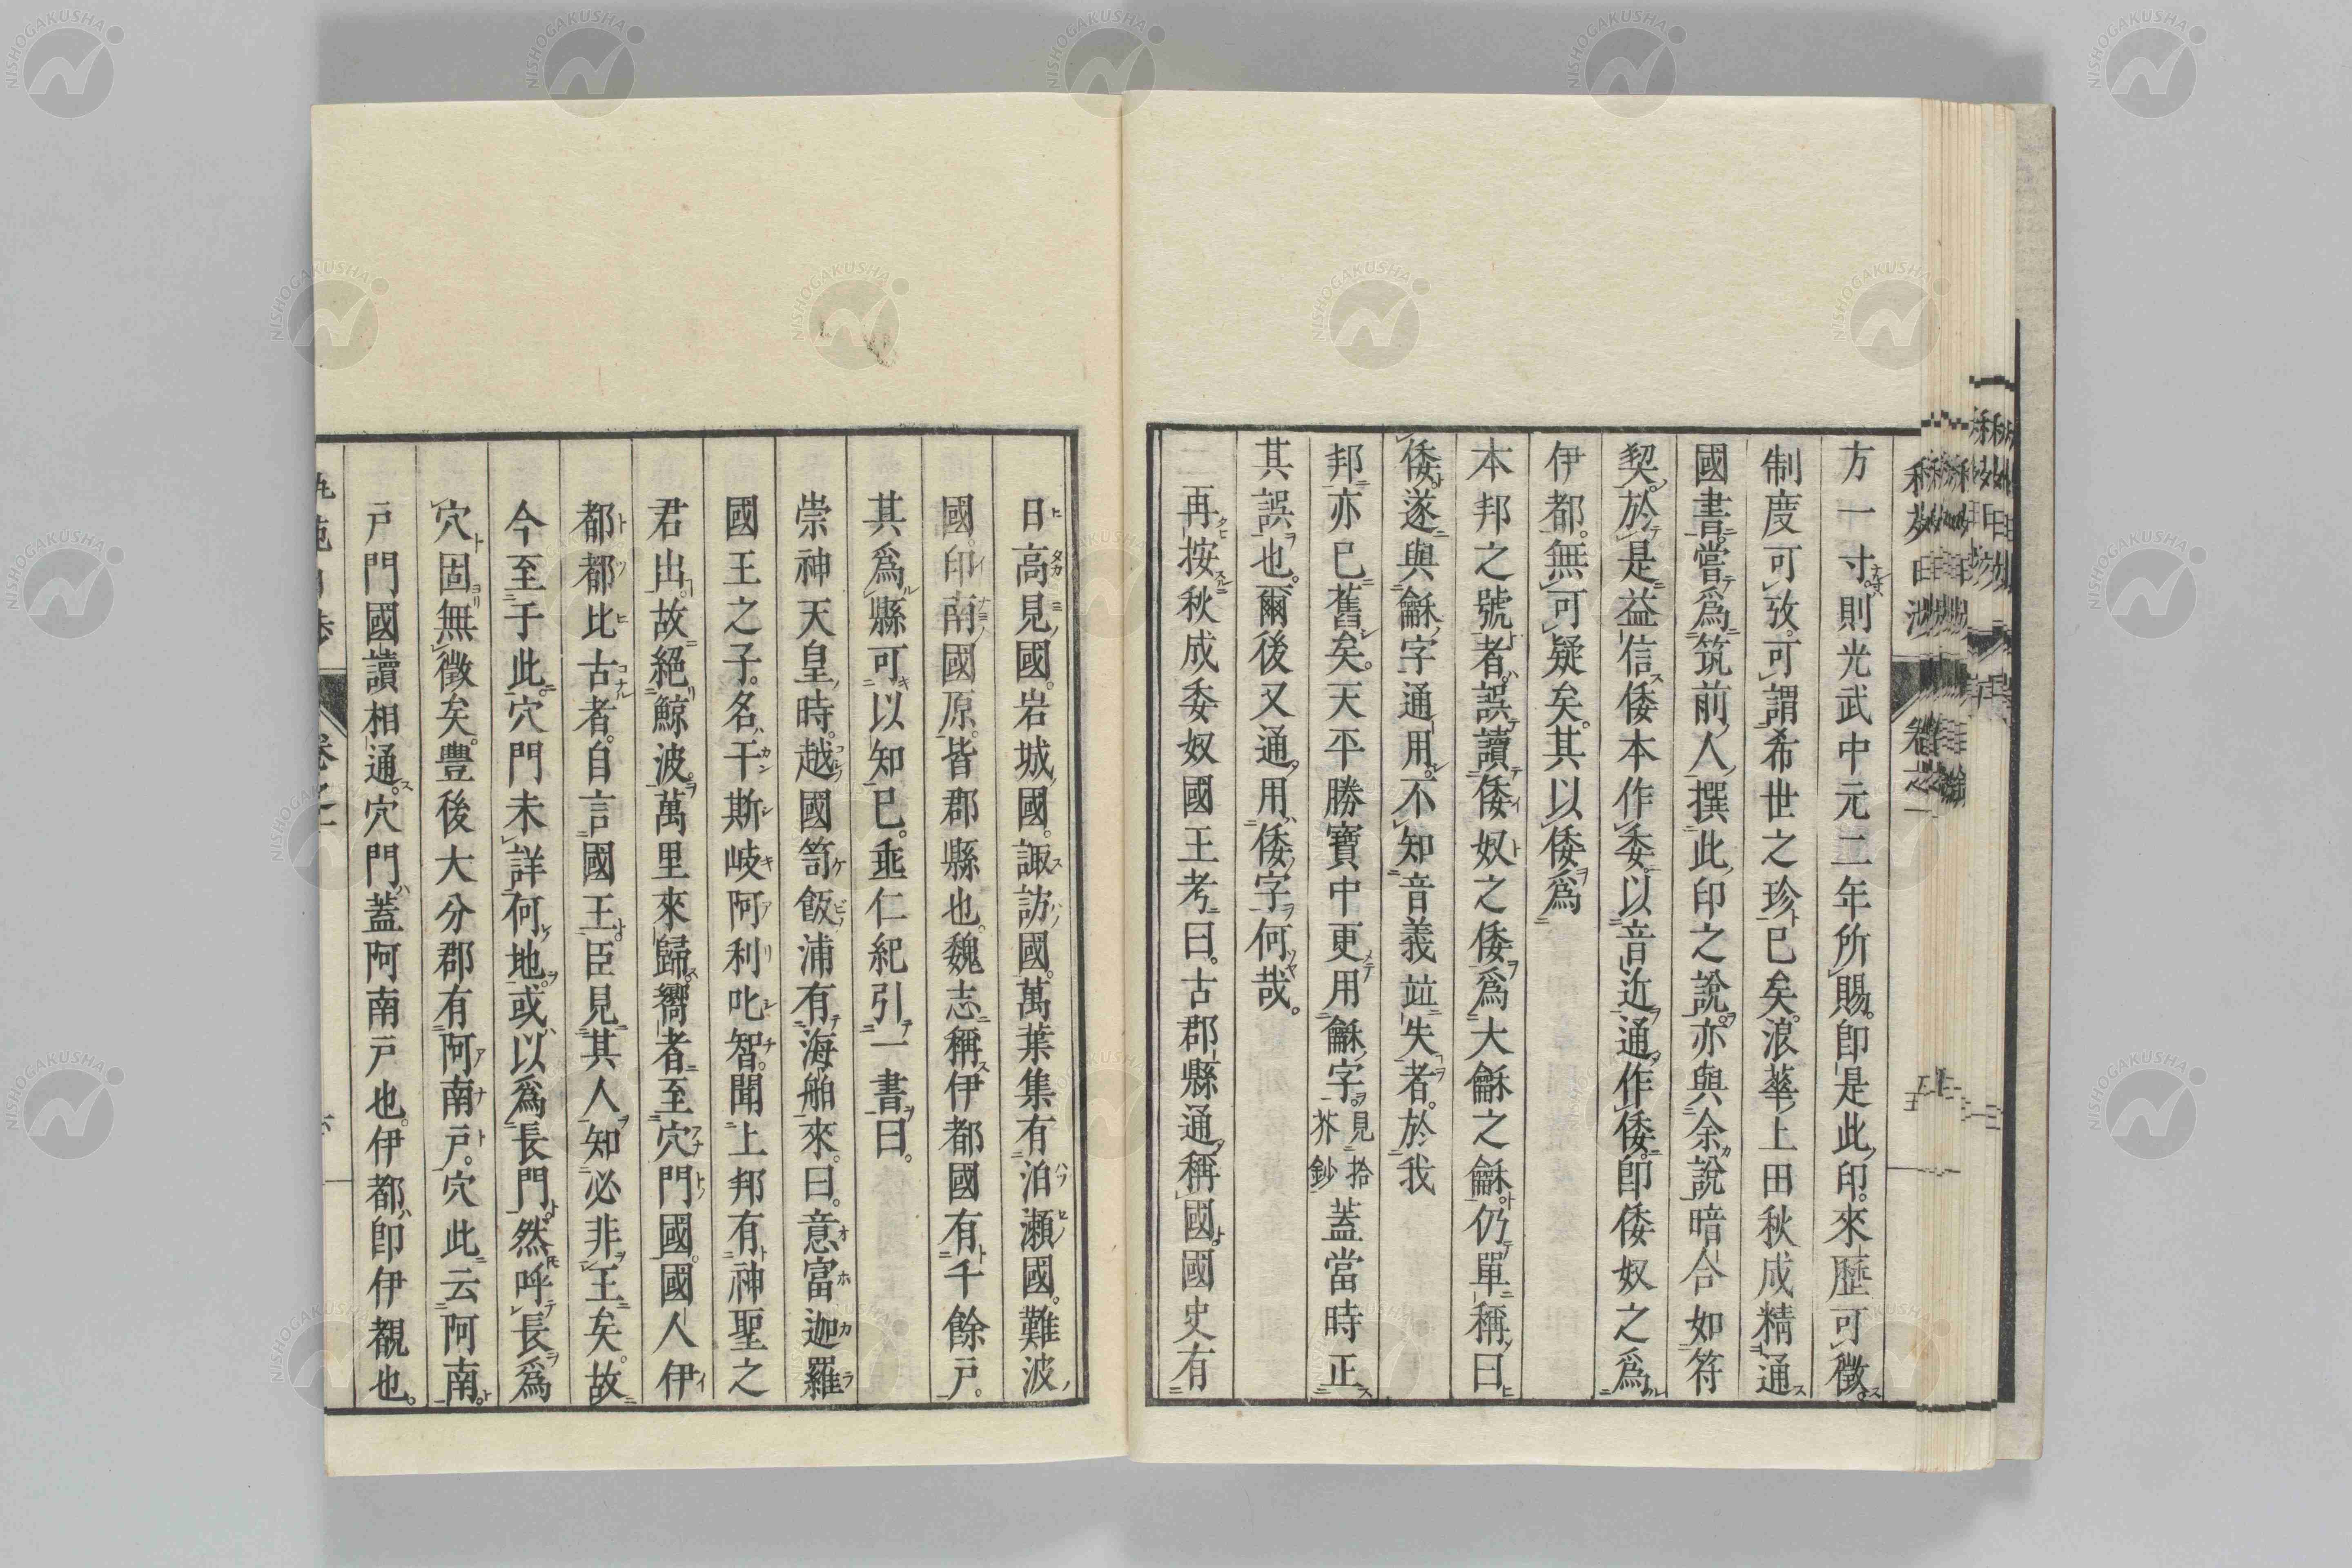 方一寸。則光武中元二年所賜。卽是此印。來歷可徵。
制度可攷。可謂希世之珍已矣。浪華上田秋成精通
國書。嘗爲筑前人撰此印之說。亦與余說暗合如符
契。於是益信倭本作委。以音近通作倭。卽倭奴之爲
伊都。無可疑矣。其以倭爲
本邦之號者。誤讀倭奴之倭爲大龢之龢。仍單稱曰
倭。遂與龢字通用。不知音義竝失者。於我
邦亦已舊矣。天平勝寶中更用龢字。見拾芥鈔蓋當時正
其誤也。爾後又通用倭字何哉。
再按秋成委奴國王考曰。古郡縣通稱國。國史有
日高見國。岩城國。諏訪國。萬葉集有泊瀬國。難波
國。印南國原。皆郡縣也。魏志稱伊都國有千餘戸。
其爲縣可以知已。垂仁紀引一書曰。
崇神天皇時。越國笥飯浦有海舶來。曰。意富迦羅
國王之子。名干斯岐阿利叱智。聞上邦有神聖之
君出。故絕鯨波。萬里來歸嚮者至穴門國。國人伊
都都比古者。自言國王。臣見其人知必非王矣。故
今至于此。穴門未詳何地。或以爲長門。然呼長爲
穴固無徵矣。豊後大分郡有阿南戸。穴此云阿南。
戸門國讀相通。穴門蓋阿南戸也。伊都卽伊覩也。
卷之一